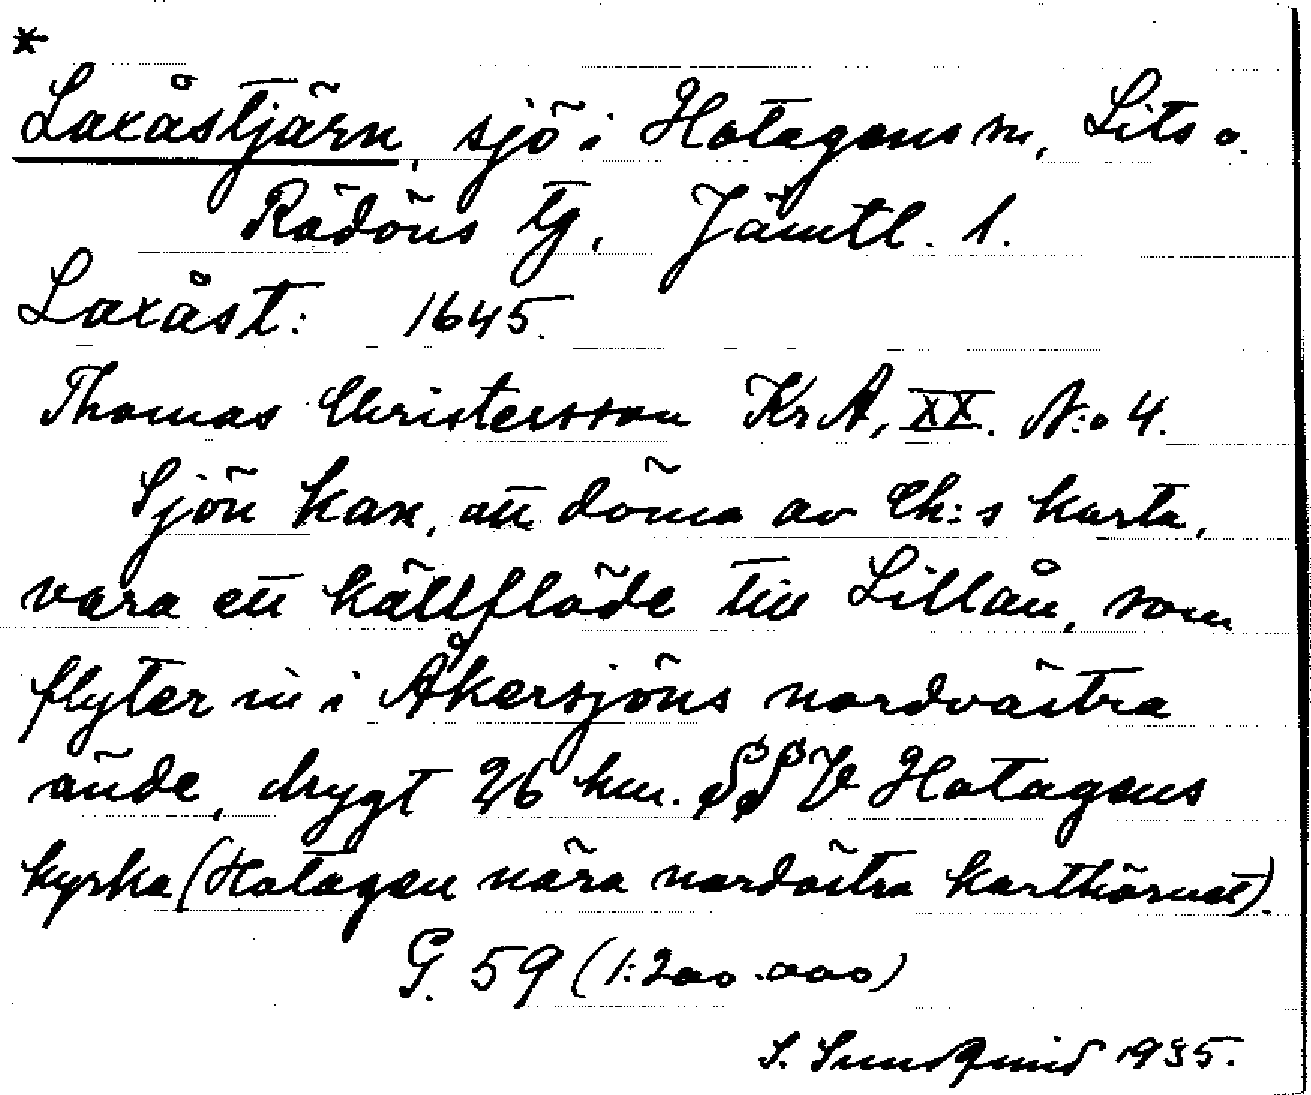 *
Laxåstjärn, sjö i Hotagens sn, Lits o.
Rödöns tg, Jämtl. l.
Laxåst: 1645.
Thomas Christersson KrA, XX. N:o 4.
Sjön kan, att döma av Ch:s karta,
vara ett källflöde till Lillån, som
flyter in i Åkersjöns nordvästra
ände, drygt 26 km. SSV Hotagens
kyrka (Hotagen nära nordöstra karthörnet).
G. 59 (1:200.000)
S. Sundqvist 1935.